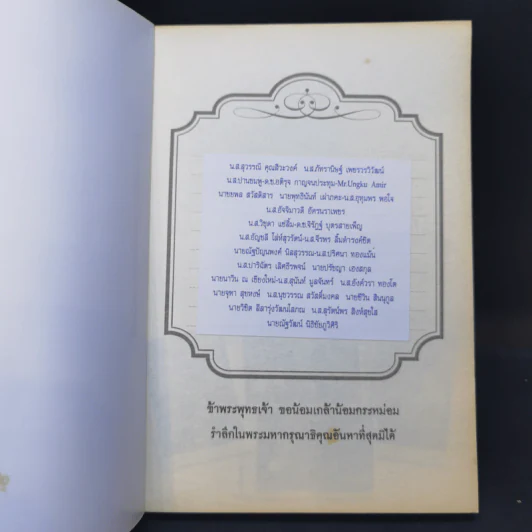 น.ส.สุวรรณี คุณสิวะวงค์ น.ส.ภัทรานิษฐ์ เพชรวรวิวัฒน์
น.ส.ปานชมพู-ด.ช.อติรุจ กาญจนประทุม-Mr.Ungku Amir
นายยพล สวัสดิสาร นายพุทธินันท์ เฝาภคะ-น.ส.ยุทุมพร พอใจ
น.ส.อัจจิมาวดี อัครนราเพชร
น.ส.วิชุดา แซ่ลิ้ม-ด.ช.จิรัฏฐ์ บุตรสายเพ็ญ
น.ส.อัญชลี โล่ห์สุวรัตน์-น.ส.จิรพร ลิ้มดำรงค์ชิต
นายณัฐปัญนพงศ์ นิลสุวรรณ-น.ส.ปริศนา ทองแม้น
น.ส.ปาริฉัตร เลิศธีรพจน์ นายปรัชญา เฮงสกุล
นายนาวิน ณ เชียงใหม่-น.ส.สุนันท์ มูลจันทร์ น.ส.อังค์วรา ทองโต
นายจุฬา สุขหงษ์ น.ส.นุชวรรณ สวัสดิ์มงคล นายชีวิน สินนุกูล
นายวิชิต ลีลารุ่งวัฒนโสภณ น.ส.สุรัตน์พร สิงห์สุขใส
นายณัฐวัฒน์ นิธิชัยภูวิศิริ
ข้าพระพุทธเจ้า ขอน้อมเกล้าน้อมกระหม่อม
รำลึกในพระมหากรุณาธิคุณอันหาที่สุดมิได้